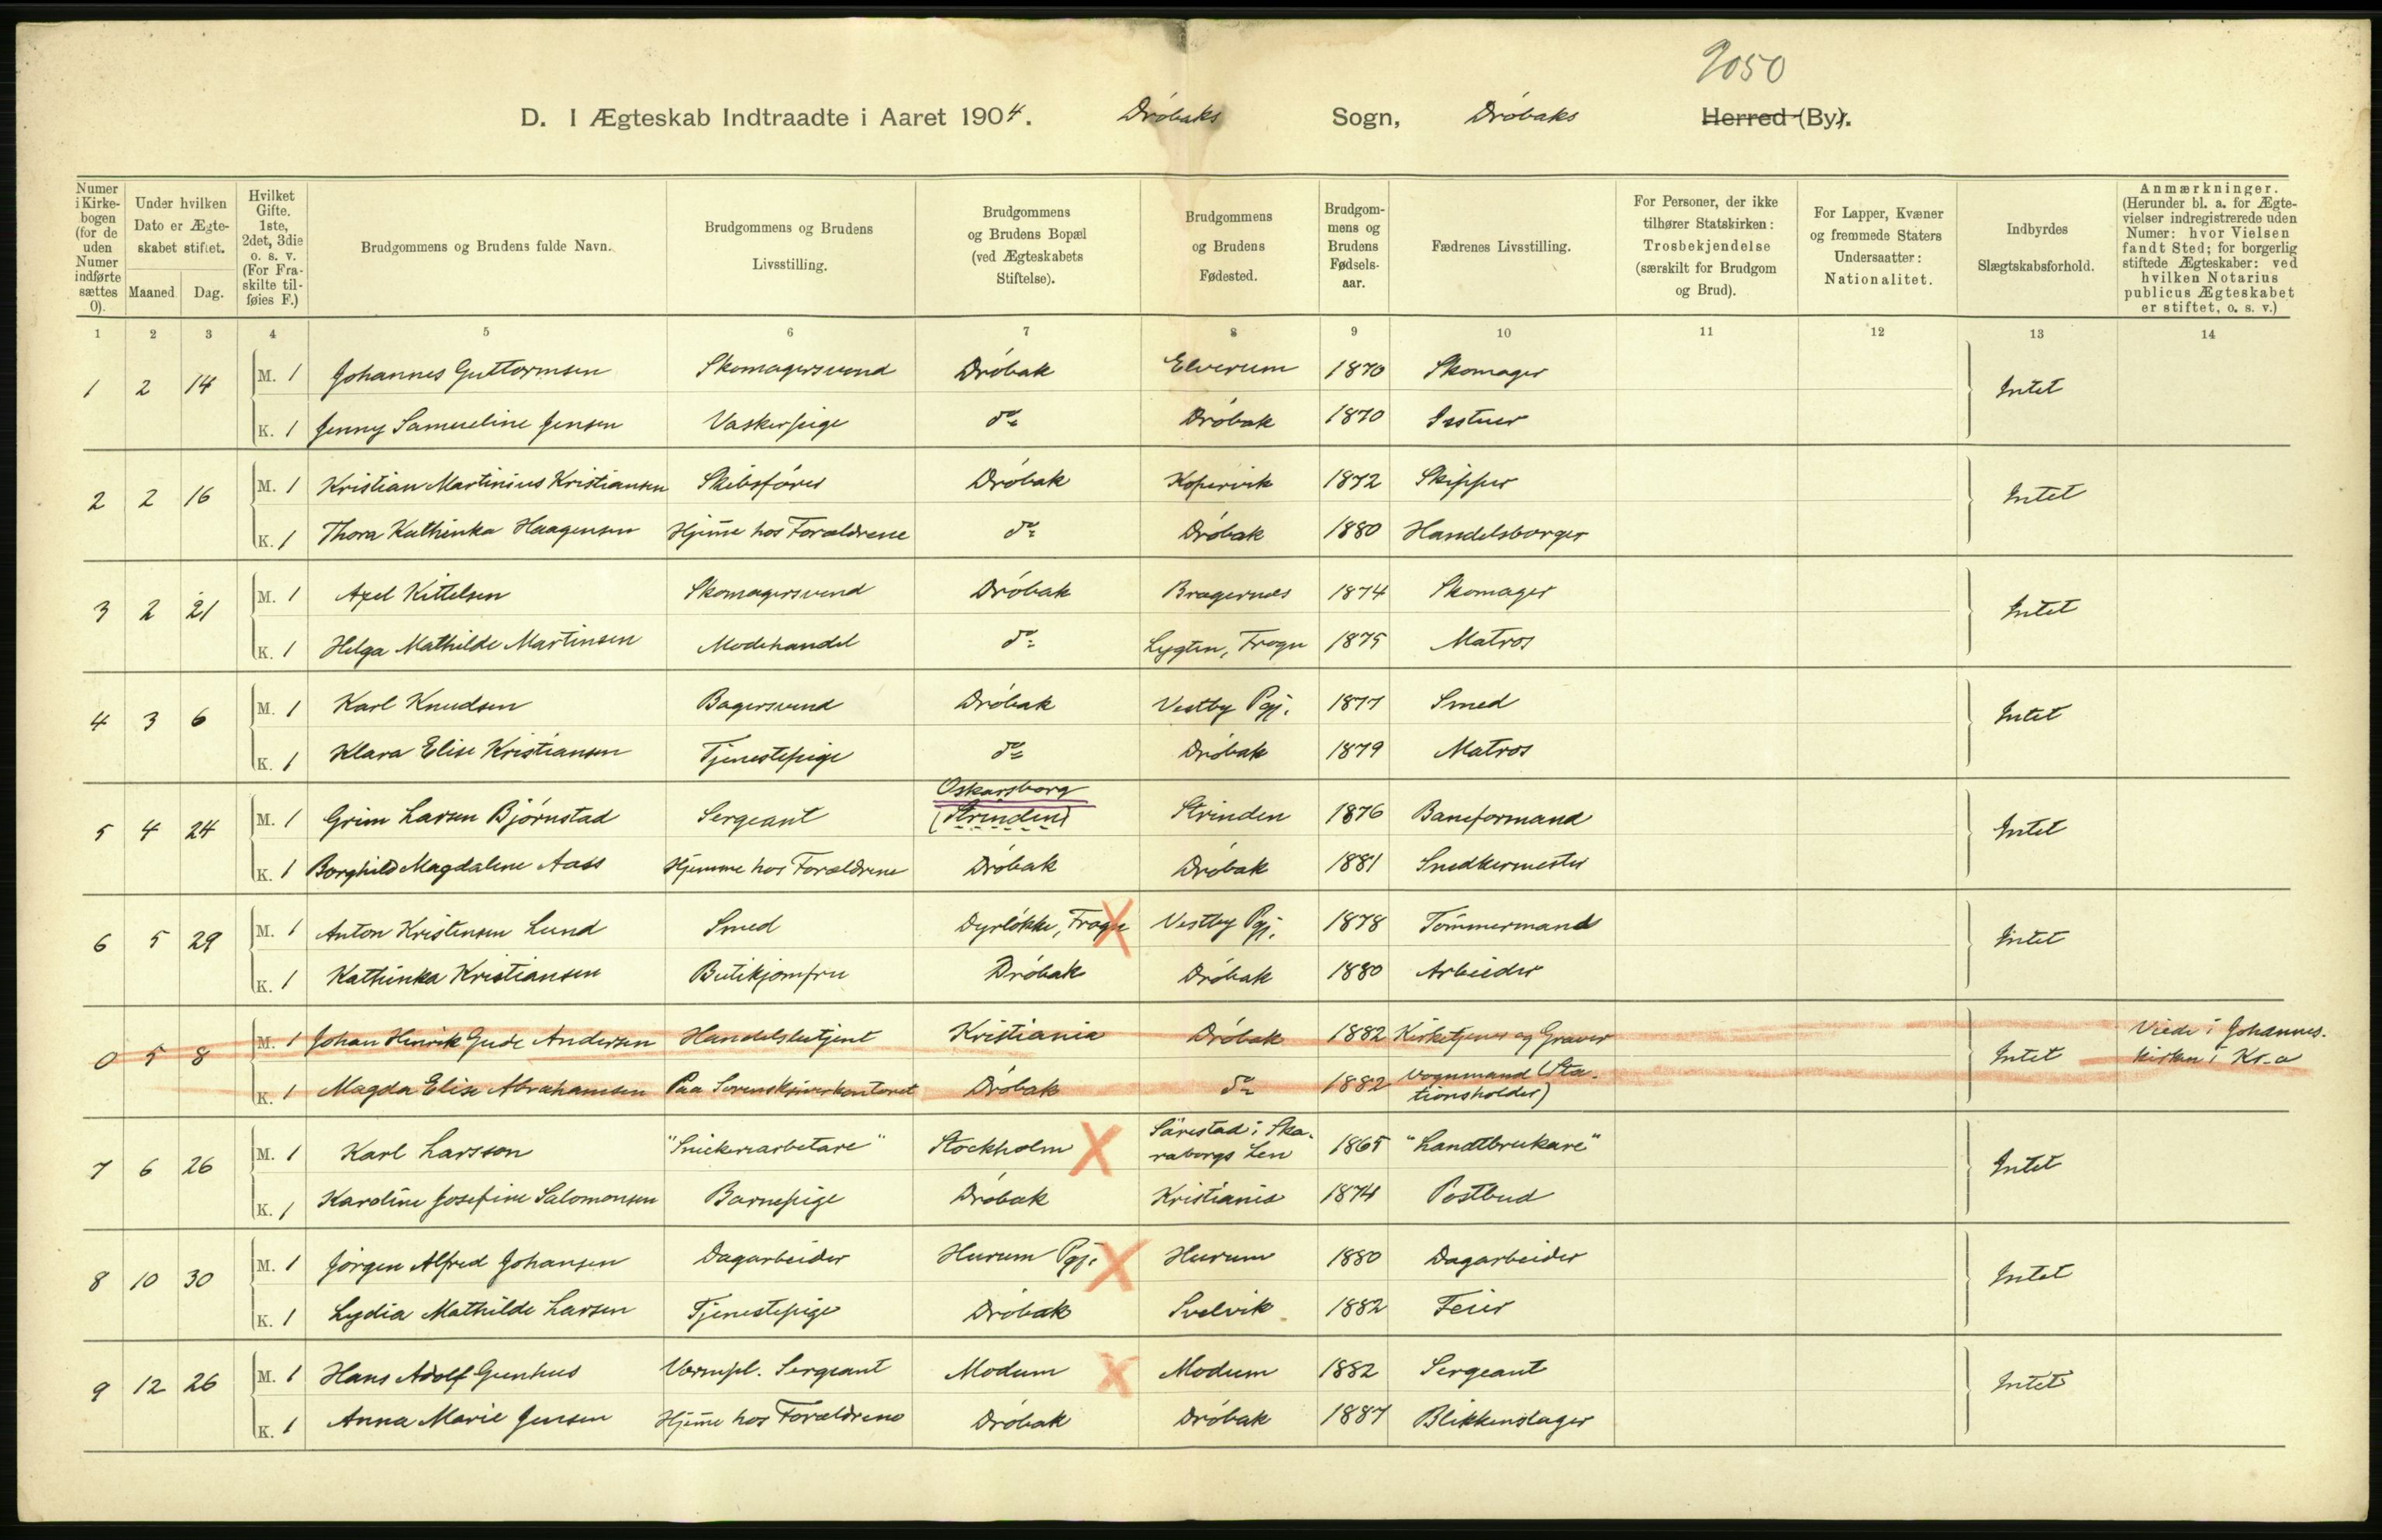 2050
D. I Ægteskab Indtraadte i Aaret 1904. Drøbaks Sogn, Drøbaks Herred (By).
Numer i Kirkebogen (for de uden Numer indførte sættes 0). Under hvilken Dato er Ægteskabet stiftet. Maaned. Dag. Hvilket Gifte. 1ste, 2det, 3die o. s. v. (For Fraskilte tilføies F.) Brudgommens og Brudens fulde Navn. Brudgommens og Brudens Livsstilling. Brudgommens og Brudens Bopæl (ved Ægteskabets Stiftelse). Brudgommens og Brudens Fødested. Brudgommens og Brudens Fødselsaar. Fædrenes Livsstilling. For Personer, der ikke tilhører Statskirken: Trosbekjendelse (særskilt for Brudgom og Brud). For Lapper, Kvæner og fremmede Staters Undersaatter: Nationalitet. Indbyrdes Slægtskabsforhold. Anmærkninger. (Herunder bl. a. for Ægtevielser indregistrerede uden Numer: hvor Vielsen fandt Sted; for borgerlig stiftede Ægteskaber: ved hvilken Notarius publicus Ægteskabet er stiftet, o. s. v.)
1 2 3 4 5 6 7 8 9 10 11 12 13 14
1 2 14 M. 1 Johannes Guttormsen Skomagersvend Drøbak Elverum 1870 Skomager Intet
K. 1 Jenny Samueline Jensen Vaskerpige do Drøbak 1870
2 2 16 M. 1 Kristian Martinius Kristiansen Skibsfører Drøbak Kopervik 1872 Skipper Intet
K. 1 Thora Kathinka Haagensen Hjeme hos Forældrene do Drøbak 1880 Handelsborger
3 2 21 M. 1 Axel Kittelsen Skomagersvend Drøbak Bragernes 1874 Skomager Intet
K. 1 Helga Mathilde Martinsen Modehandel do Lygten, Frogn 1875 Matros
4 3 6 M. 1 Karl Knudsen Bagersvend Drøbak Vestby Pgj. 1877 Smed Intet
K. 1 Klara Elise Kristiansen Tjenestepige do Drøbak 1879 Matros
5 4 24 M. 1 Grim Larsen Bjørnstad Sergeant Oskarsborg (Strinden) Strinden 1876 Baneformand Intet
K. 1 Borghild Magdalene Aass Hjemme hos Forældrene Drøbak Drøbak 1881 Snedkermester
6 5 29 M. 1 Anton Kristensen Lund Smed Dyrløkke, Frogn Vestby Pgj. 1878 Tømmermand Intet
K. 1 Kathinka Kristiansen Butikjomfru Drøbak Drøbak 1880 Arbeider
0 5 8 M. 1 Johan Henrik Gude Andersen Handelsbetjent Kristiania Drøbak 1882 Kirketjener og Graver Intet Viede i Johanneskirken i Kr.a
K. 1 Magda Elise Abrahamsen Paa Sorenskriverkontoret Drøbak do 1882 Vognmand (Stationsholder)
7 6 26 M. 1 Karl Larsson "Snickeriarbetare" Stockholm Särestad i Skaraborgs Len 1865 "Landtbrukare" Intet
K. 1 Karoline Josefine Salomonsen Barnepige Drøbak Kristiania 1874 Postbud
8 10 30 M. 1 Jørgen Alfred Johansen Dagarbeider Hurum Pgj. Hurum 1880 Dagarbeider Intet
K. 1 Lydia Mathilde Larsen Tjenestepige Drøbak Svelvik 1882 Feier
9 12 26 M. 1 Hans Adolf Gunhus Vernepl. Sergeant Modum Modum 1882 Sergeant Intet
K. 1 Anna Marie Jensen Hjeme hos Forældrene Drøbak Drøbak 1887 Blikkenslager